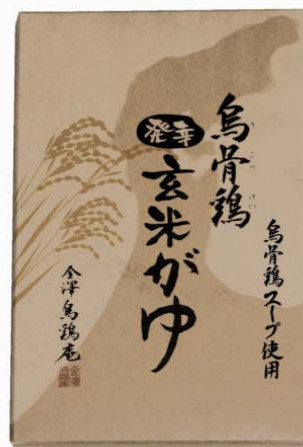 烏骨鶏
発芽
玄米がゆ
烏骨鶏スープ使用
金澤烏鶏庵